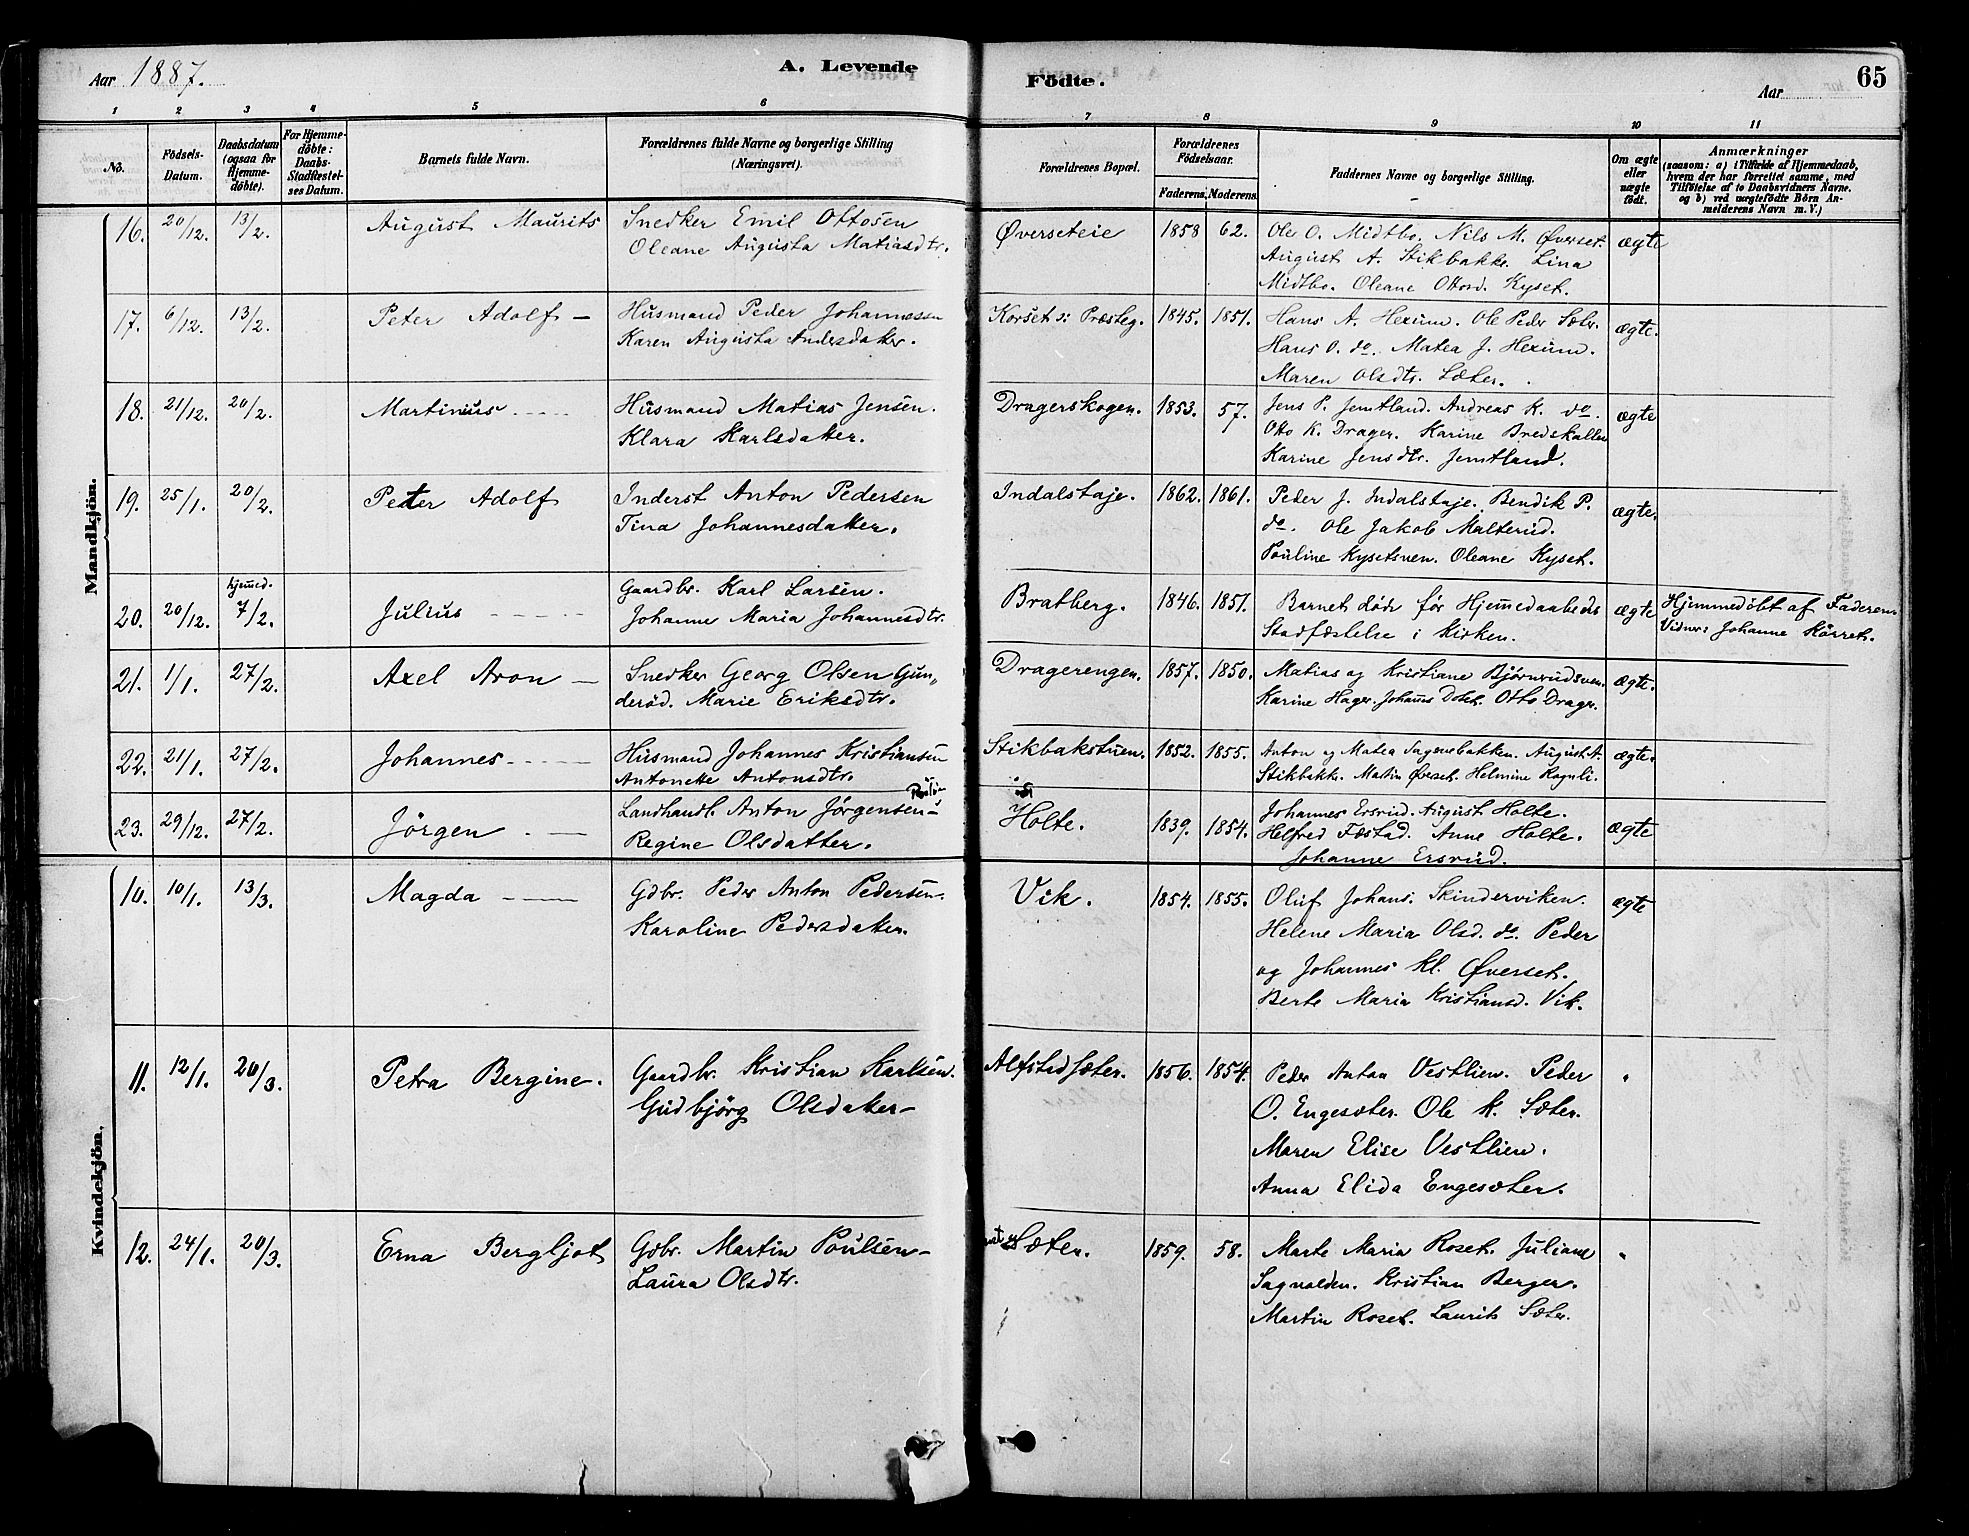 Aar 1887. A. Levende Födte. Aar 65
1 2 3 4 5 6 7 8 9 10 11
No. Födsels-Datum. Daabsdatum (ogsaa for Hjemme-döbte). For Hjemme-döbte: Daabs-Stadfæstel-ses Datum. Barnets fulde Navn. Forældrenes fulde Navne og borgerlige Stilling (Næringsvei). Forældrenes Bopæl. Forældrenes Födselsaar. Faderens. Moderens. Faddernes Navne og borgerlige Stilling. Om ægte eller uægte födt. Anmærkninger (saasom: a) i Tilfælde af Hjemmedaab, hvem der har forrettet samme, med Tilföielse af to Daabsvidners Navne. og b) ved uægtefödte Börn Anmelderens Navn m. V.)
Mandkjön.
16. 20/12. 13/2. August Maurits Snedker Emil Ottosen Øverseteie 1858 62. Ole O. Midtbo. Nils M. Øverset. ægte
Oleane Augusta Matiasdtr. August A. Stikbakke. Lina
Midtbo. Oleane Ottosd. Kyset.
17. 6/12. 13/2. Peter Adolf — Husmand Peder Johannesen Korset s: Præsteg. 1845. 1851. Hans A. Hexum. Ole Peder Sæter. ægte.
Karen Augusta Andersdatter. Hans O. do. Matea J. Hexum.
Maren Olsdtr. Sæter.
18. 21/12. 20/2. Martinius Husmand Matias Jensen. Dragerskogen. 1853. 57. Jens P. Jemtland. Andreas K. do. ægte
Klara Karlsdatter. Otto K. Drager. Karine Bredskallen
Karine Jensdtr. Jemtland.
19. 25/1. 20/2. Peter Adolf Inderst Anton Pedersen Indalstaje. 1862. 1861. Peder J. Indalstaje. Bendik P. ægte.
Tina Johannesdatter. do. Ole Jakob Malterud.
Pouline Kysetsven. Oleane Kyset.
20. 20/12. hjemmed. 7/2. Julius Gaardbr. Karl Larsen. Bratberg. 1846. 1851. Barnet døde før Hjemmedaabeds ægte Hjemmedöbt af Faderen.
Johanne Maria Johannesdtr. Stadfæstelse i Kirken. Vidner: Johanne Körret.
21. 1/1. 27/2. Axel Aron — Snedker Georg Olsen Gun„ Dragerengen. 1857. 1850. Matias og Kristiane Bjørnrudsven. ægte.
deröd. Marie Eriksdtr. Karine Hager. Otto Drager.
22. 21/1. 27/2. Johannes Husmand Johannes Kristiansen Stikbakstuen. 1852. 1855. Anton og Matea Sagenebakken. August A. ægte.
Antonette Antonsdtr. Stikbakke. Martin Øverset. Helmine Kognli.
23. 29/12. 27/2. Jörgen Landhandl. Anton Jörgensen Holte. 1839. 1854. Johannes Ersrud. August Holte. ægte
Regine Olsdatter. Helfred Fæstad. Anne Holte.
Johanne Ersrud.
Kvindekjön.
10. 10/1. 13/3. Magda Gdbr. Peder Anton Pedersen. Vik. 1854. 1855. Oluf Johans. Skinderviken. ægte
Karoline Pedersdatter. Helene Maria Olsd. do. Peder
og Johannes Kl. Øverset.
Berte Maria Kristiansd. Vik.
11. 12/1. 20/3. Petra Bergine. Gaardbr. Kristian Karlsen. Alfstadsæter. 1856. 1854. Peder Anton Vestlien. Peder "
Gudbjörg Olsdatter O. Engesæter. Ole K. Sæter.
Maren Elise Vestlien.
Anna Elida Engesæter.
12. 24/1. 20/3. Erna Bergljot Gdbr. Martin Poulsen Sæter. 1859. 58. Marte Maria Roset. Juliane "
Laura Olsdtr. Sagvolden. Kristian Berger.
Martin Roset. Laurits Sæter.